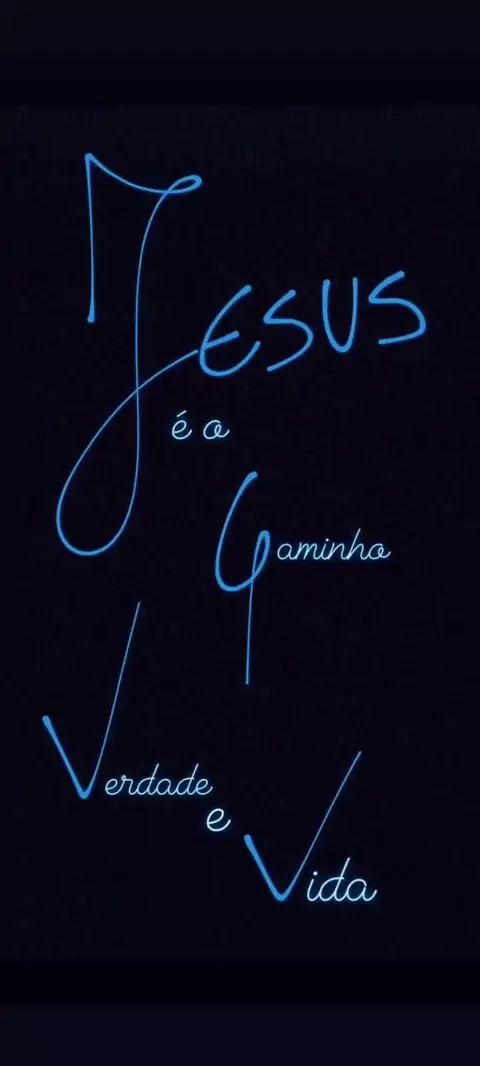 JESUS
é o
Caminho
Verdade
e
Vida